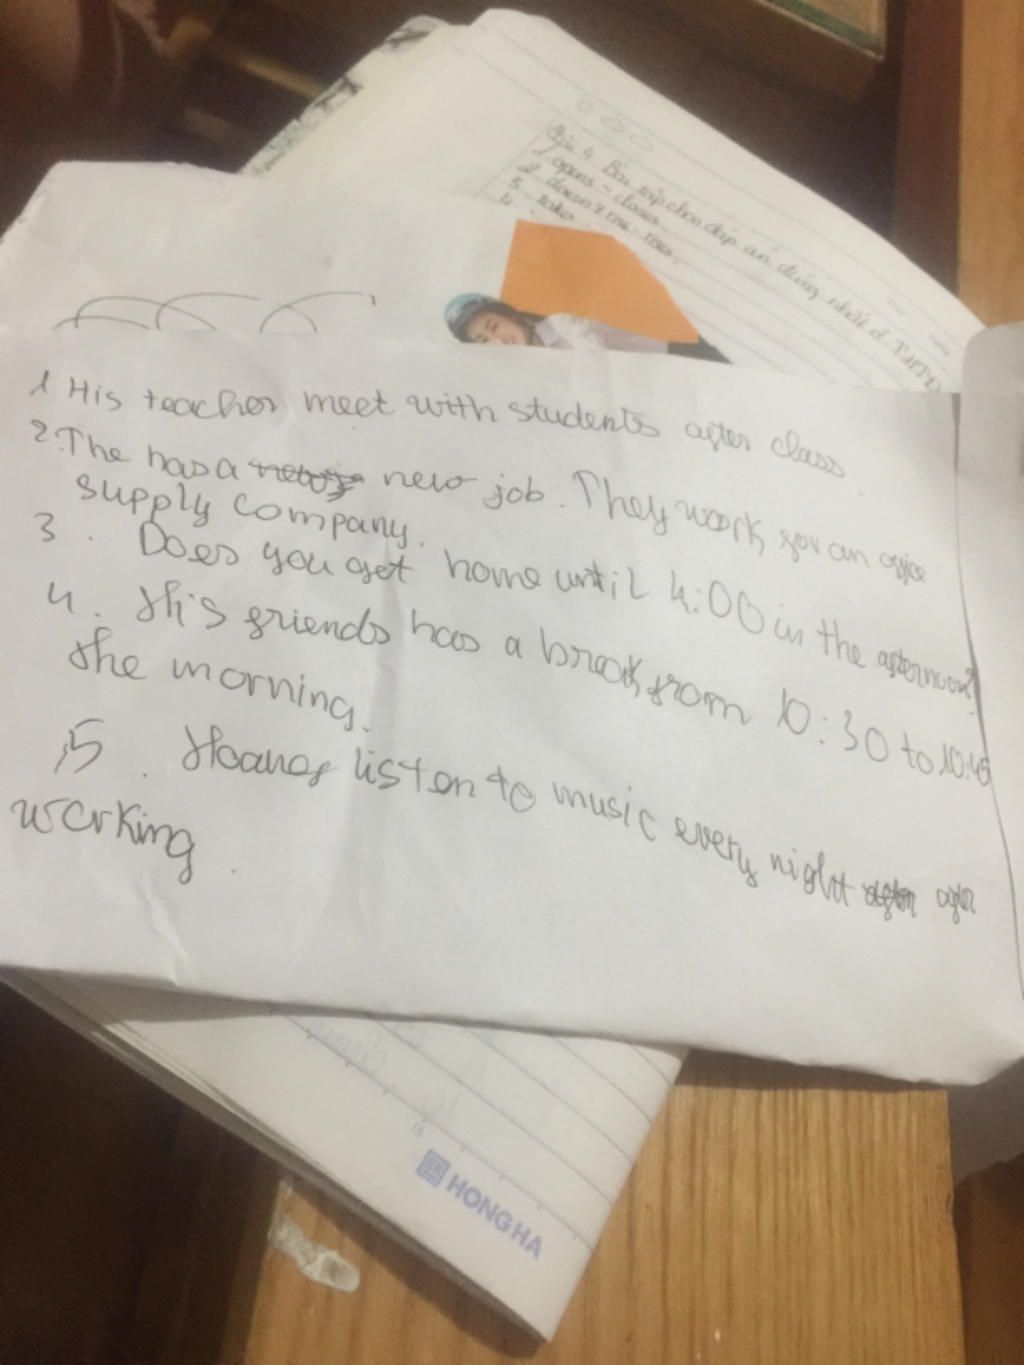 Bài 4 Bài tập chọn đáp án đúng nhất ở
1 opens - closes
2 doesn't
3. Take
4.
1 His teacher meet with students after class.
2. The has a new job. They work for an office
supply company.
3. Does you get home until 4:00 in the afternoon?
4. His friends has a break from 10:30 to 10:45
the morning.
5. Hoang listen to music every night after
working.
15
HONG HA